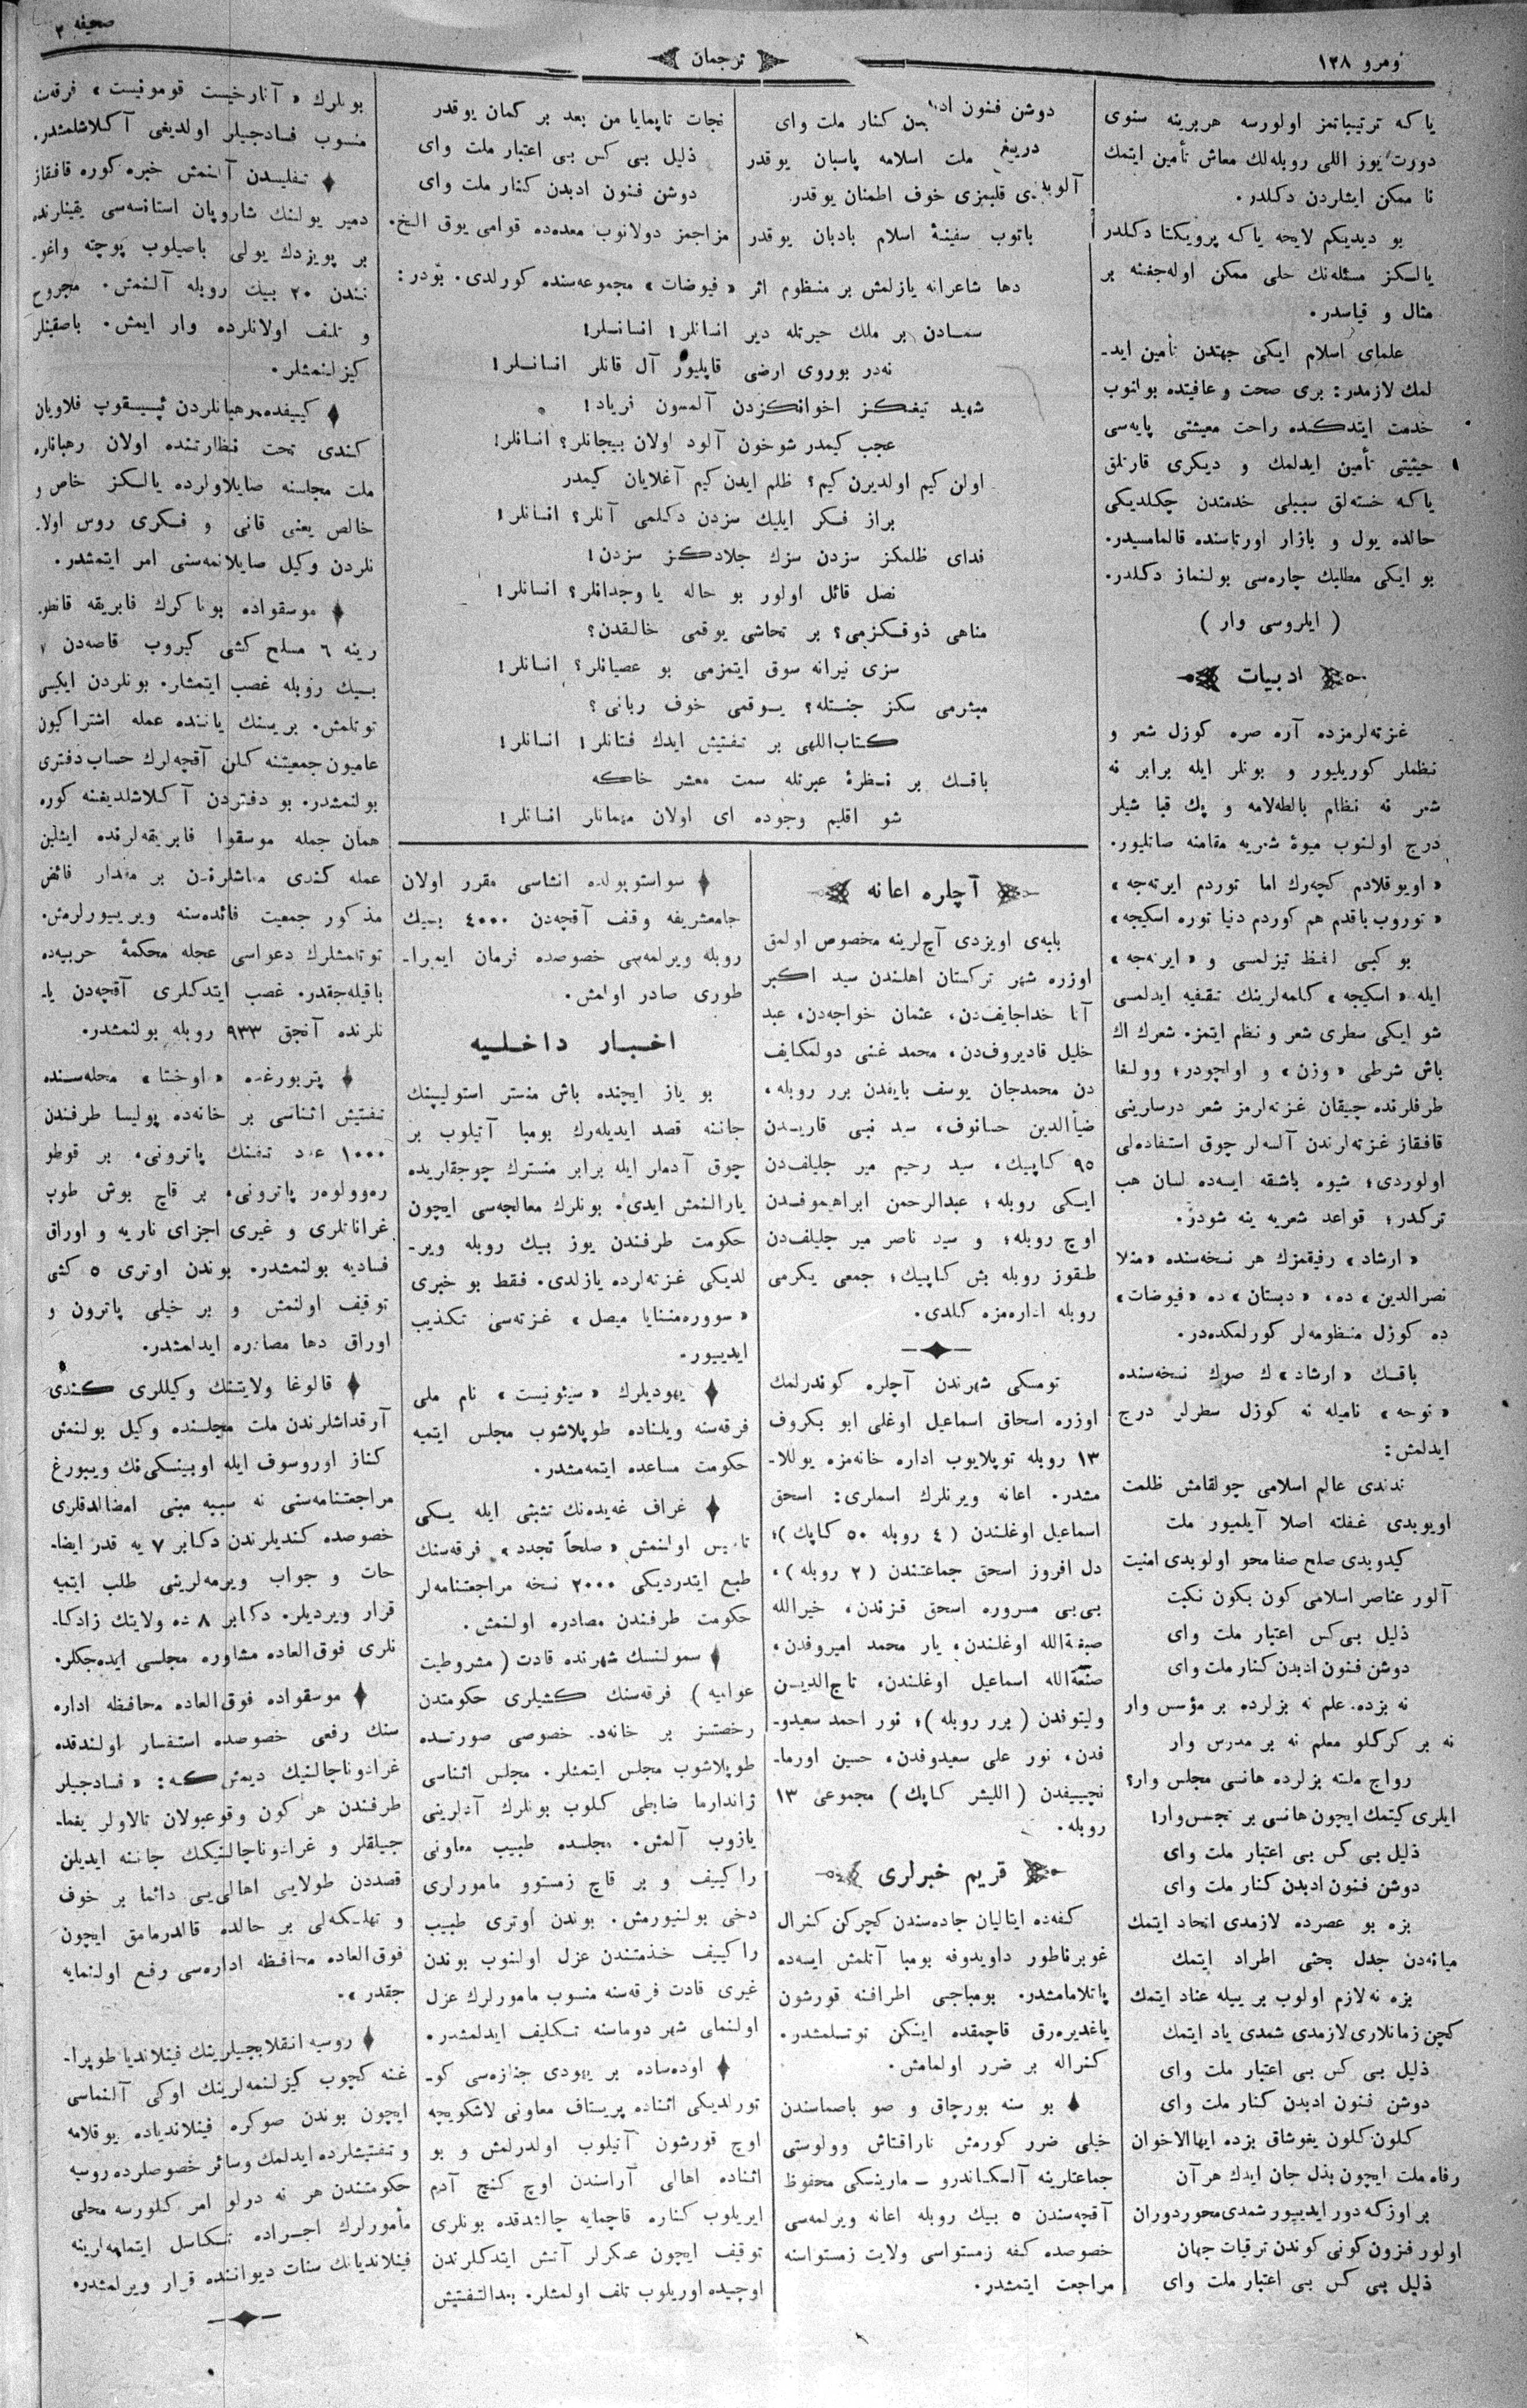 نومرو ١٣٨
ترجمان
صحيفه ٣
ياكه ترتيباتمز اولورسه هربرينه سنوى
دورت يوز اللى روبله‌لك معاش تأمين ايتمك
نا ممكن ايشلردن دكلدر.
بو ديديكم لايحه ياكه پرويكتا دكلدر
يالكز مسئله‌نك حلى ممكن اوله‌جغنه بر
مثال و قياسدر.
علماى اسلام ايكى جهتدن تأمين ايد-
لمك لازمدر: برى صحت و عافيتده بولنوب
خدمت ايتدكده راحت معيشتى پايه‌سى
حيثيتى تأمين ايدلمك و ديكرى قارتلق
ياكه خسته‌لق سببلى خدمتدن چكلديكى
حالده يول و بازار اورتاسنده قالمامسيدر.
بو ايكى مطلبك چاره‌سى بولنماز دكلدر.
( ايلروسى وار )
ادبيات
غزته‌لرمزده آره صره كوزل شعر و
نظملر كوريليور و بونلر ايله برابر نه
شعر نه نظام بالطه‌لامه و پك قبا شيلر
درج اولنوب ميوهٔ شعريه مقامنه صاتليور.
« اويوقلادم كچه‌رك اما توردم ايرته‌جه »
« توروب باقدم هم كوردم دنيا توره اسكيجه »
بو كبى لفظ تيزلمسى و « ايرته‌جه »
ايله « اسكيجه » كلمه‌لرينك تقفيه ايدلمسى
شو ايكى سطرى شعر و نظم ايتمز. شعرك اك
باش شرطى « وزن » و اولچودر؛ وولغا
طرفلرنده چيقان غزته‌لرمز شعر درسارينى
قافقاز غزته‌لرندن آلسه‌لر چوق استفاده‌لى
اولوردى؛ شيوه باشقه ايسه‌ده لسان هب
تركدر؛ قواعد شعريه ينه شودر.
« ارشاد » رفيقمزك هر نسخه‌سنده « منلا
نصرالدين » ده، « دبستان » ده « فيوضات »
ده كوزل منظومه‌لر كورلمكده‌در.
باقك « ارشاد » ك صوك نسخه‌سنده
« نوحه » ناميله نه كوزل سطرلر درج
ايدلمش:
ندندى عالم اسلامى چولقامش ظلمت
اويويدى غفلته اصلا آيلميور ملت
كيدويدى صلح صفا محو اولويدى امنيت
آلور عناصر اسلامى كون بكون نكبت
ذليل بى‌كس اعتبار ملت واى
دوشن فنون ادبدن كنار ملت واى
نه بزده. علم نه بزلرده بر مؤسس وار
نه بر كركلو معلم نه بر مدرس وار
رواج ملته بزلرده هانسى مجلس وار؟
ايلرى كيتمك ايچون هانسى بر تجسس‌وار!
ذليل بى كس بى اعتبار ملت واى
دوشن فنون ادبدن كنار ملت واى
بزه بو عصرده لازمدى اتحاد ايتمك
ميانه‌دن جدل بحثى اطراد ايتمك
بزه نه‌لازم اولوب بر بيله عناد ايتمك
كچن زمانلارى لازمدى شمدى ياد ايتمك
ذليل بى كس بى اعتبار ملت واى
دوشن فنون ادبدن كنار ملت واى
كلون كلون يغوشاق بزده ايهاالاخوان
رفاه ملت ايچون بذل جان ايدك هر آن
بر اوزكه دور ايدييور شمدى محور دوران
اولور فزون كونى كوندن ترقيات جهان
ذليل بى كس بى اعتبار ملت واى
دوشن فنون ادبدن كنار ملت واى
دريغ ملت اسلامه پاسبان يوقدر
قلبمزى خوف اطمنان يوقدر
باتوب سفينهٔ اسلام بادبان يوقدر
نجات تاپمايا من بعد بر كمان يوقدر
ذليل بى كس بى اعتبار ملت واى
دوشن فنون ادبدن كنار ملت واى
مزاجمز دولانوب معده‌ده قوامى يوق الخ.
دها شاعرانه يازلمش بر منظوم اثر « فيوضات » مجموعه‌سنده كورلدى. بودر:
سمادن بر ملك حيرتله دير انسانلر! انسانلر!
نه‌در بوروى ارضى قاپليور آل قانلر انسانلر!
شهيد تيغكز اخوانكزدن آلمسون فرياد!
عجب كيمدر شو خون آلود اولان بيجانلر؟ انسانلر!
اولن كيم اولديرن كيم؟ ظلم ايدن كيم آغلايان كيمدر
براز فكر ايليك سزدن دكلمى آنلر؟ انسانلر!
فداى ظلمكز سزدن سزك جلادكز سزدن!
نصل قائل اولور بو حاله يا وجدانلر؟ انسانلر!
مناهى ذوقكزمى؟ بر تحاشى يوقمى خالقدن؟
سزى نيرانه سوق ايتمزمى بو عصيانلر؟ انسانلر!
مبشرمى سكز جنتله؟ يوقمى خوف ربانى؟
كتاب‌اللهى بر تفتيش ايدك فتانلر! انسانلر!
باقك بر نظرهٔ عبرتله سمت معشر خاكه
شو اقليم وجوده اى اولان مهمانلر انسانلر!
آچلره اعانه
بابه‌ى اويزدى آچ‌لرينه مخصوص اولمق
اوزره شهر تركستان اهلندن سيد اكبر
آتا خداجايف‌دن، عثمان خواجه‌دن، عبد
خليل قاديروف‌دن، محمد غنى دولمكايف
دن محمدجان يوسف بايفدن برر روبله،
ضياءالدين حسانوف، سيد نبى قاريدن
٩٥ كاپيك، سيد رحيم مير جليلف‌دن
ايكى روبله؛ عبدالرحمن ابراهيموفدن
اوچ روبله؛ و سيد ناصر مير جليلف‌دن
طقوز روبله بش كاپيك؛ جمعى يكرمى
روبله اداره‌مزه كلدى.
تومسكى شهرندن آچلره كوندرلمك
اوزره اسحاق اسماعيل اوغلى ابو بكروف
١٣ روبله توپلايوب اداره خانه‌مزه يوللا-
مشدر. اعانه ويرنلرك اسملرى: اسحق
اسماعيل اوغلندن ( ٤ روبله ٥٠ كاپك )؛
دل افروز اسحق جماعتندن ( ٢ روبله )،
بى‌بى مسروره اسحق قزندن، خيرالله
صبغةالله اوغلندن، يار محمد اميروفدن،
صنعةالله اسماعيل اوغلندن، تاج‌الدين
وليتوفدن ( برر روبله )؛ نور احمد سعيدو-
فدن، نور على سعيدوفدن، حسين اورما-
نچييفدن ( الليشر كاپك ) مجموعى ١٣
روبله.
قريم خبرلرى
كفه‌ده ايتاليان جاده‌سندن كچركن كنرال
غوبرناطور داويدوفه بومبا آتلمش ايسه‌ده
پاتلامامشدر. بومباجى اطرافنه قورشون
ياغديره‌رق قاچمقده ايتكن توتلمشدر.
كنراله بر ضرر اولمامش.
بو سنه بورچاق و صو باصماسندن
خيلى ضرر كورمش ناراقتاش وولوستى
جماعتلرينه آلكساندرو - مارينسكى محفوظ
آقچه‌سندن ٥ بيك روبله اعانه ويرلمه‌سى
خصوصده كفه زمستواسى ولايت زمستواسنه
مراجعت ايتمشدر.
سواستوپولده انشاسى مقرر اولان
جامعشريفه وقف آقچه‌دن ٤٠٠٠ بيك
روبله ويرلمه‌سى خصوصده فرمان ايمپرا-
طورى صادر اولمش.
اخبار داخليه
بو ياز ايچنده باش منستر استوليپنك
جاننه قصد ايديله‌رك بومبا آتيلوب بر
چوق آدملر ايله برابر منسترك چوجقلريده
يارالنمش ايدى. بونلرك معالجه‌سى ايچون
حكومت طرفندن يوز بيك روبله وير-
لديكى غزته‌لرده يازلدى. فقط بو خبرى
« سووره‌مننايا ميصل » غزته‌سى تكذيب
ايدييور.
يهوديلرك « سيئونيست » نام ملى
فرقه‌سنه ويلناده طوپلاشوب مجلس ايتميه
حكومت مساعده ايتمه‌مشدر.
غراف غه‌يده‌نك تشبثى ايله يكى
تأسيس اولنمش « صلحاً تجدد » فرقه‌سنك
طبع ايتدرديكى ٢٠٠٠ نسخه مراجعتنامه‌لر
حكومت طرفندن مصادره اولنمش.
سمولنسك شهرنده قادت ( مشروطيت
عواميه ) فرقه‌سنك كشيلرى حكومتدن
رخصتسز بر خانه‌ده خصوصى صورتده
طوپلاشوب مجلس ايتمشلر. مجلس اثناسى
ژاندارما ضابطى كلوب بونلرك آدلرينى
يازوب آلمش. مجلسده طبيب معاونى
راكييف و بر قاچ زمستوو مامورلرى
دخى بولنيورمش. بوندن اوترى طبيب
راكييف خدمتندن عزل اولنوب بوندن
غيرى قادت فرقه‌سنه منسوب مامورلرك عزل
اولنماى شهر دوماسنه تكليف ايدلمشدر.
اوده‌ساده بر يهودى جنازه‌سى كو-
تورلديكى اثناده پريستاف معاونى لاشكويچه
اوچ قورشون آتيلوب اولدرلمش و بو
اثناده اهالى آراسندن اوچ كنج آدم
ايريلوب كناره قاچمايه چالشدقده بونلرى
توقيف ايچون عسكرلر آتش ايتدكلرندن
اوچيده اوريلوب تلف اولمشلر. بعدالتفتيش
بونلرك « آنارخيست قومونيست » فرقه‌سنه
منسوب فسادجيلر اولديغى آكلاشلمشدر.
تفليسدن آلنمش خبره كوره قافقاز
دمير يولنك شاروپان استانسه‌سى يقينلرنده
بر پويزدك يولى باصيلوب پوچته واغو-
نندن ٢٠ بيك روبله آلنمش. مجروح
و تلف اولانلرده وار ايمش. باصقينلر
كيزلنمشلر.
كييفده رهبانلردن ئپيسقوپ فلاويان
كندى تحت نظارتنده اولان رهبانلره
ملت مجلسنه صايلاولرده يالكز خاص و
خالص يعنى قانى و فكرى روس اولا-
نلردن وكيل صايلانمه‌سنى امر ايتمشدر.
موسقواده بوناكرك فابريقه قانطو-
رينه ٦ مسلح كشى كيروب قاصه‌دن ٧
بيك روبله غصب ايتمشلر. بونلردن ايكيسى
توتلمش. بريسنك ياننده عمله اشتراكيون
عاميون جمعيتنه كلن آقچه‌لرك حساب دفترى
بولنمشدر. بو دفتردن آكلاشلديغنه كوره
همان جمله موسقوا فابريقه‌لرنده ايشلين
عمله كندى معاشلرندن بر مقدار فائض
مذكور جمعيت فائده‌سنه ويرييورلرمش.
توتلمشلرك دعواسى عجله محكمهٔ حربيه‌ده
باقيله‌جقدر. غصب ايتدكلرى آقچه‌دن يا-
نلرنده آنجق ٩٣٣ روبله بولنمشدر.
پتربورغده « اوختا » محله‌سنده
تفتيش اثناسى بر خانه‌ده پوليسا طرفندن
١٠٠٠ عدد تفنك پاترونى، بر قوطو
ره‌وولوه‌ر پاترونى، بر قاچ بوش طوپ
غراناتلرى و غيرى اجزاى ناريه و اوراق
فساديه بولنمشدر. بوندن اوترى ٥ كشى
توقيف اولنمش و بر خيلى پاترون و
اوراق دها مصادره ايدلمشدر.
قالوغا ولايتنك وكيللرى كندى
آرقداشلرندن ملت مجلسنده وكيل بولنمش
كناز اوروسوف ايله اوبنينسكى‌نك ويبورغ
مراجعتنامه‌سنى نه سببه مبنى امضالدقلرى
خصوصده كنديلرندن دكابر ٧ يه قدر ايضا-
حات و جواب ويرمه‌لرينى طلب ايتميه
قرار ويرديلر. دكابر ٨ ده ولايتك زادكا-
نلرى فوق‌العاده مشاوره مجلسى ايده‌جكلر.
موسقواده فوق‌العاده محافظه اداره
سنك رفعى خصوصده استفسار اولندقده
غرادوناچالنيك ديمش‌كه: « فسادجيلر
طرفندن هر كون وقوعبولان تالاولر يغما-
جيلقلر و غرادوناچالنيكك جاننه ايديلن
قصددن طولايى اهالى‌يى دائما بر خوف
و تهلكه‌لى بر حالده قالدرمامق ايچون
فوق‌العاده محافظه اداره‌سى رفع اولنمايه
جقدر ».
روسيه انقلابجيلرينك فينلانديا طوپرا-
غنه كچوب كيزلنمه‌لرينك اوكى آلنماسى
ايچون بوندن صوكره فينلانديا‌ده يوقلامه
و تفتيشلرده ايدلمك وسائر خصوصلرده روسيه
حكومتندن هر نه درلو امر كلورسه محلى
مأمورلرك اجراده تكاسل ايتمامه‌لرينه
فينلانديانك سنات ديواننده قرار ويرلمشدر.